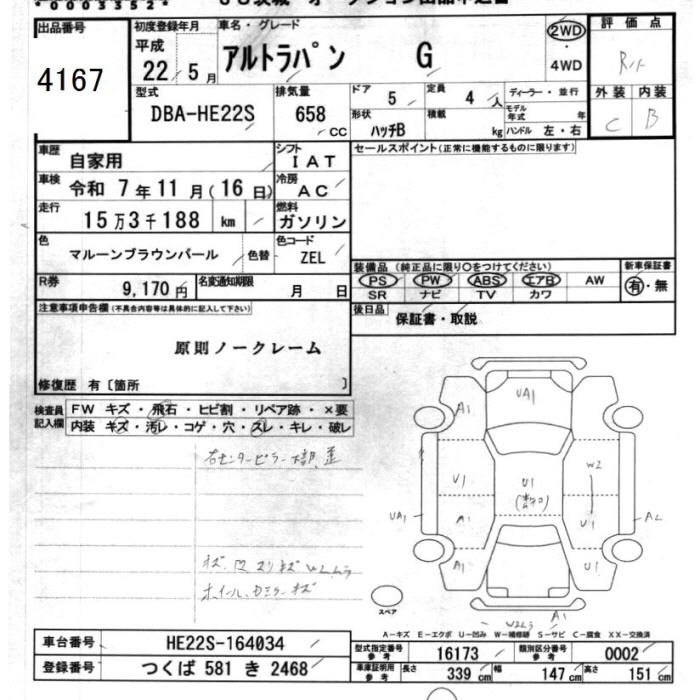 *0003352*
出品番号
4167
初度登録年月
平成
22年 5月
車名・グレード
アルトラパン G
2WD
・
4WD
評価点
外装 内装
C B
型式
DBA-HE22S
排気量
658 CC
ドア 5
定員 4人
形状 ハッチB
積載 kg
ディーラー・並行
モデル年式 年
ハンドル 左・右
車歴 自家用
シフト IAT
車検 令和 7年 11月 (16日)
冷房 AC
走行 15万3千188 km
燃料 ガソリン
色 マルーンブラウンパール 色替
色コード ZEL
R券 9,170円
名変通知期限 月 日
セールスポイント(正常に機能するものに限ります)
装備品 (純正品に限り〇をつけてください)
PS PW ABS エアB AW
SR ナビ TV カワ
新車保証書
有・無
後日品 保証書・取説
注意事項申告欄(不具合内容等は具体的に記入して下さい)
原則ノークレーム
修復歴 有〔箇所 〕
検査員記入欄
FW キズ・飛石・ヒビ割・リペア跡・×要
内装 キズ・汚レ・コゲ・穴・スレ・キレ・破レ
右センターピラー下部、歪
UA1
A1
U1
W2
U1
UA1
A1
U1
A2
A1
U1
A1
スペア
A-キズ E-エクボ U-凹み W-補修跡 S-サビ C-腐食 XX-交換済
車台番号 HE22S-164034
登録番号 つくば 581 き 2468
型式指定番号 参考 16173
類別区分番号 参考 0002
車庫証明用 参考 長さ 339cm 幅 147cm 高さ 151cm